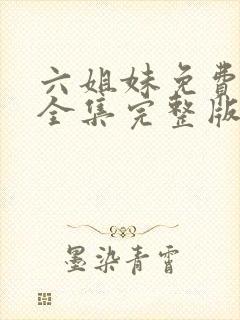 六姐妹免費
全集完整版
墨染青霄